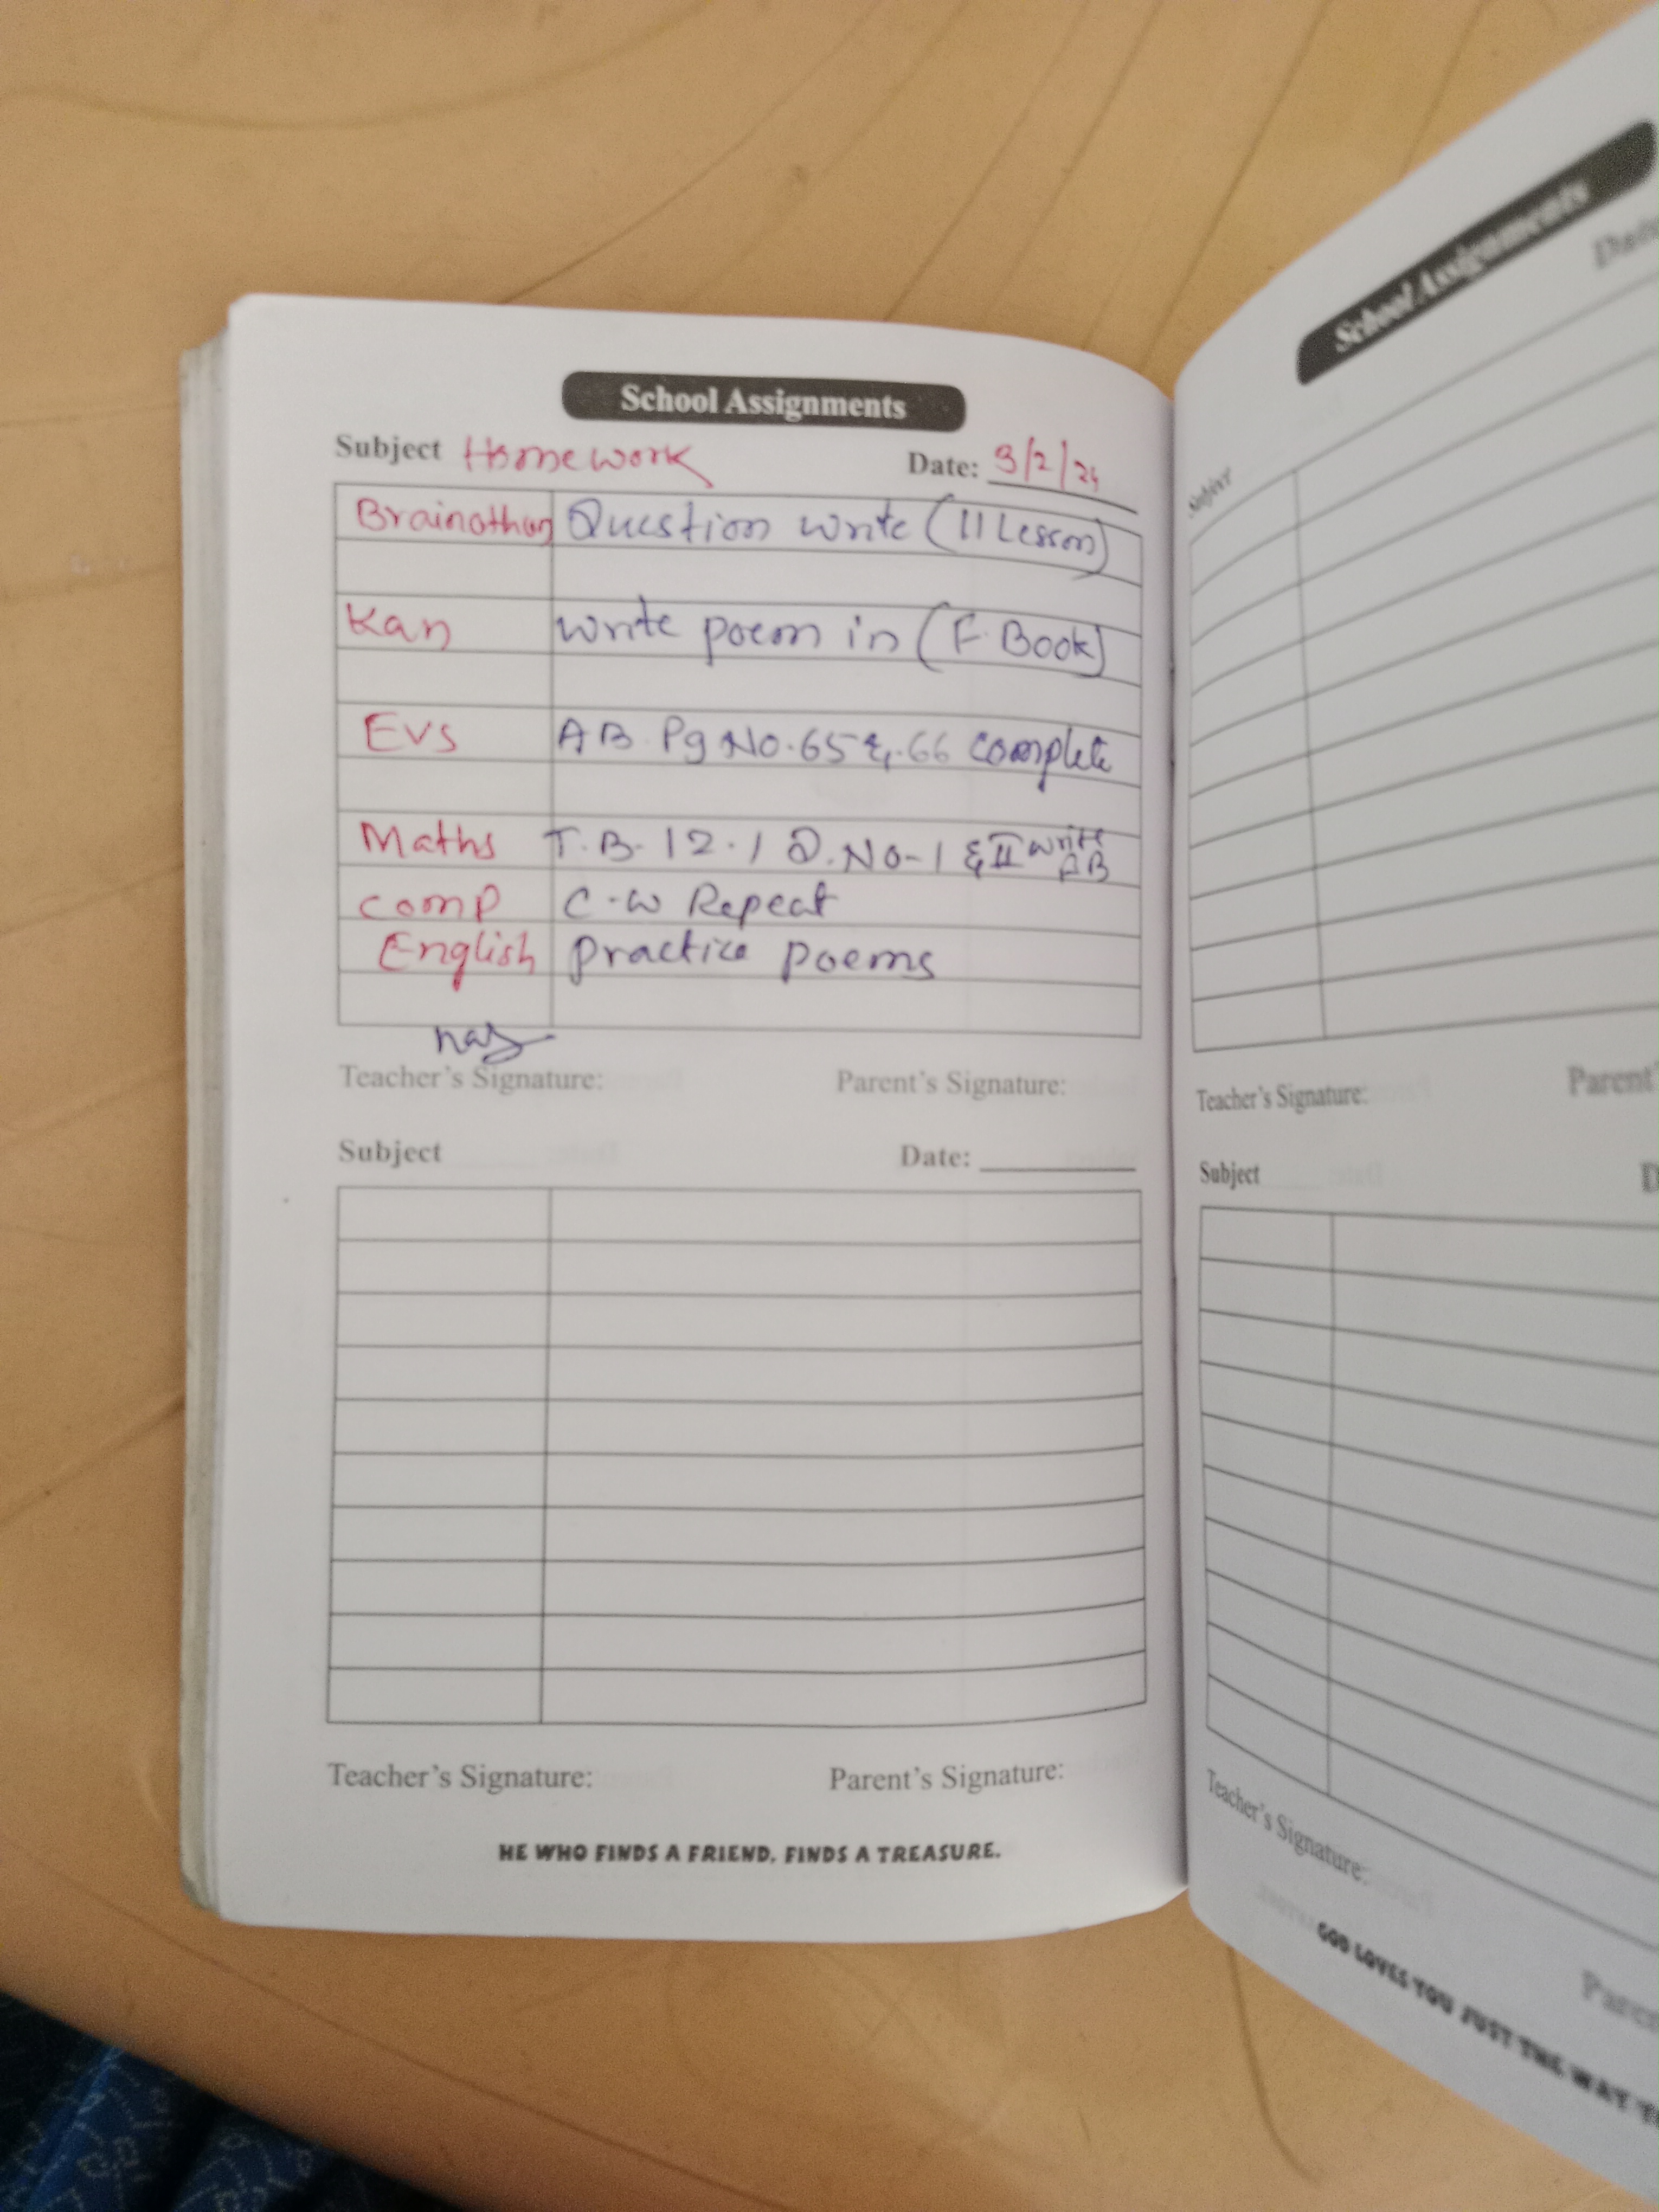 School Assignments
Subject Homework Date: 3/2/24
Brainothon Question write (11 Lesson)
Kan write poem in (F. Book)
Evs AB. Pg No. 65 &. 66 complete
Maths T.B- 12.1 Q.No-1 & II write AB
comp C-w Repeat
English practice poems
Teacher's Signature: Parent's Signature:
Subject Date:
Teacher's Signature: Parent's Signature:
HE WHO FINDS A FRIEND, FINDS A TREASURE.
School Assignments
Subject
Teacher's Signature: Parent'
Subject D
Teacher's Signature:
GOD LOVES YOU JUST THE WAY